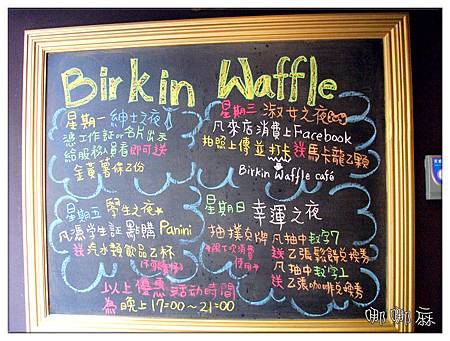 Birkin Waffle
星期一 紳士之夜
憑工作証or名片出示
給服務人員看即可送
金黃薯條乙份
星期三 淑女之夜
凡來店消費上Facebook
拍照上傳並打卡送馬卡龍乙顆
Birkin Waffle café
星期五 學生之夜
凡憑學生証點購 Panini
送汽水類飲品乙杯
星期日 幸運之夜
抽撲克牌
凡抽中数字7
送乙張鬆餅兌換券
凡抽中数字1
送乙張咖啡兌換券
以上優惠活動時間
為晚上17:00~21:00
娜娜麻